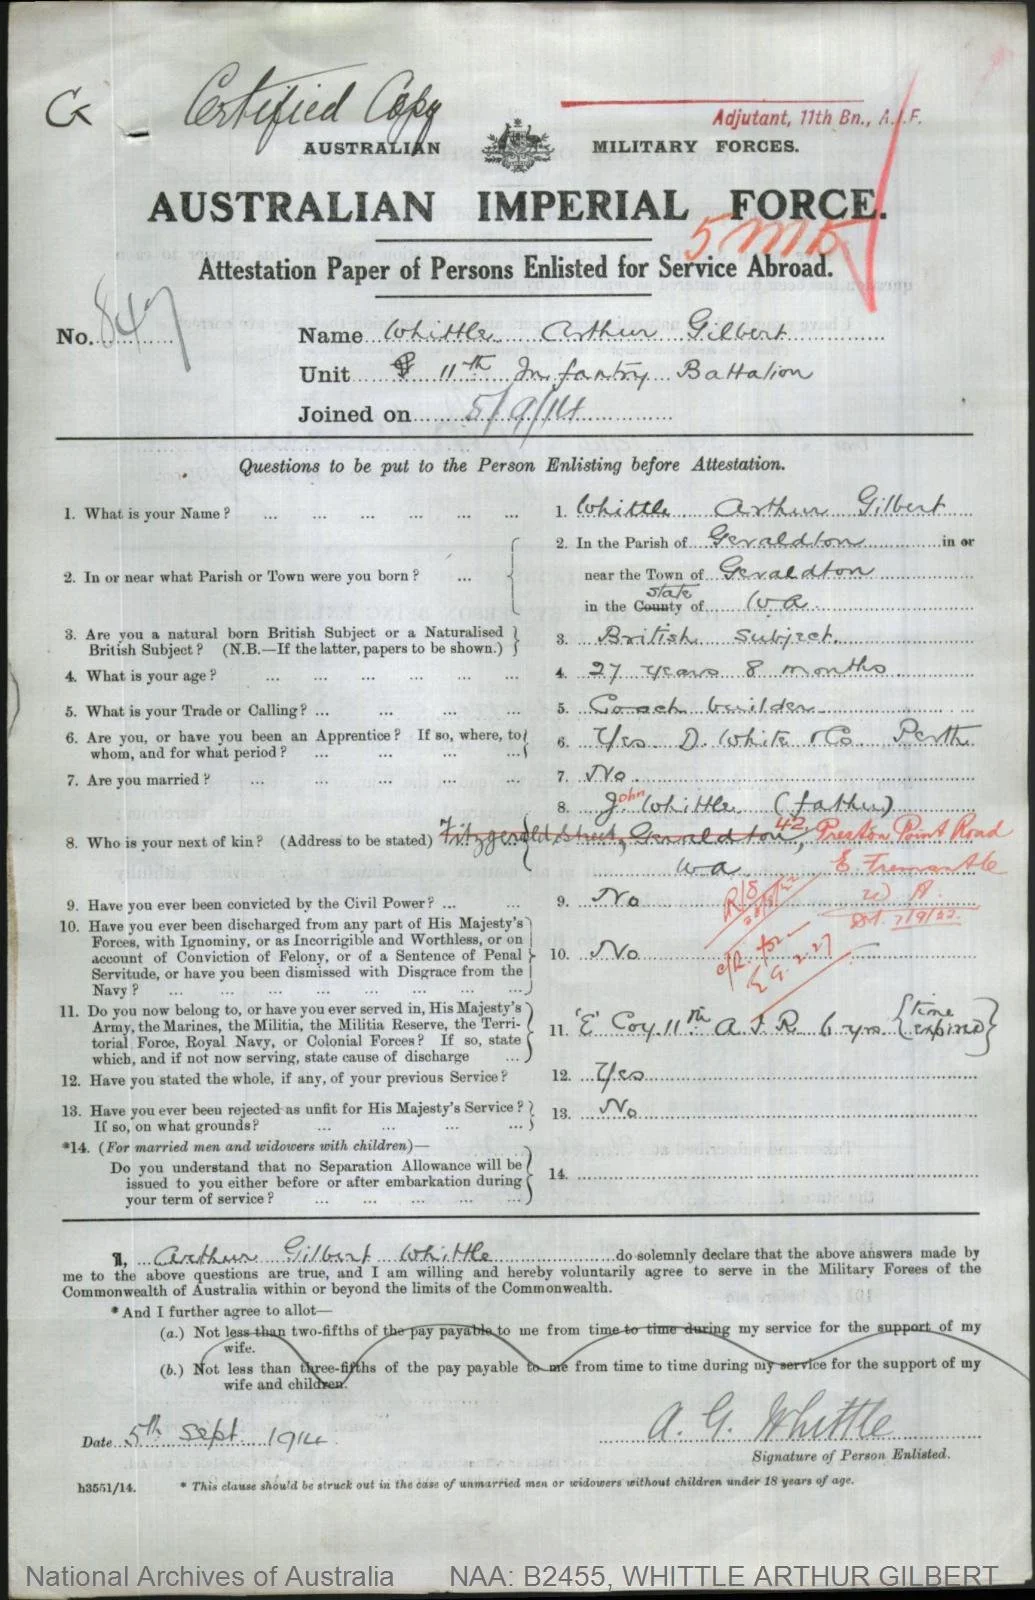 G Certified Copy
Adjutant, 11th Bn., A.I.F.
AUSTRALIAN MILITARY FORCES.
AUSTRALIAN IMPERIAL FORCE.
Attestation Paper of Persons Enlisted for Service Abroad.
No. 847 Name Whittle Arthur Gilbert
Unit 11th Infantry Battalion
Joined on 5/9/14
Questions to be put to the Person Enlisting before Attestation.
1. What is your Name? ... ... ... ... ... ... 1. Whittle Arthur Gilbert
2. In the Parish of Geraldton in or
2. In or near what Parish or Town were you born? ... near the Town of Geraldton
state
in the County of W A
3. Are you a natural born British Subject or a Naturalised
British Subject? (N.B.—If the latter, papers to be shown.) 3. British Subject
4. What is your age? ... ... ... ... ... ... 4. 27 years 8 months
5. What is your Trade or Calling? ... ... ... ... 5. Coach builder
6. Are you, or have you been an Apprentice? If so, where, to
whom, and for what period? ... ... ... ... 6. Yes D. White & Co Perth
7. Are you married? ... ... ... ... ... ... 7. No
8. John Whittle (father)
8. Who is your next of kin? (Address to be stated) Fitzgerald street, Geraldton, 42 Preston Point Road
W A E Fremantle
W A.
9. Have you ever been convicted by the Civil Power? ... ... 9. No
7/9/22
10. Have you ever been discharged from any part of His Majesty's
Forces, with Ignominy, or as Incorrigible and Worthless, or on
account of Conviction of Felony, or of a Sentence of Penal
Servitude, or have you been dismissed with Disgrace from the
Navy? ... ... ... ... ... ... ... ... 10. No
11. Do you now belong to, or have you ever served in, His Majesty's
Army, the Marines, the Militia, the Militia Reserve, the Terri-
torial Force, Royal Navy, or Colonial Forces? If so, state
which, and if not now serving, state cause of discharge ... 11. 'E' Coy 11th A I R 6 yrs {time expired}
12. Have you stated the whole, if any, of your previous Service? 12. Yes
13. Have you ever been rejected as unfit for His Majesty's Service?
If so, on what grounds? ... ... ... ... 13. No
*14. (For married men and widowers with children)—
Do you understand that no Separation Allowance will be
issued to you either before or after embarkation during
your term of service? ... ... ... ... ... 14.
I, Arthur Gilbert Whittle do solemnly declare that the above answers made by
me to the above questions are true, and I am willing and hereby voluntarily agree to serve in the Military Forces of the
Commonwealth of Australia within or beyond the limits of the Commonwealth.
* And I further agree to allot—
(a.) Not less than two-fifths of the pay payable to me from time to time during my service for the support of my
wife.
(b.) Not less than three-fifths of the pay payable to me from time to time during my service for the support of my
wife and children.
Date 5th Sept 1914 A. G. Whittle
Signature of Person Enlisted.
h3551/14. * This clause should be struck out in the case of unmarried men or widowers without children under 18 years of age.
National Archives of Australia NAA: B2455, WHITTLE ARTHUR GILBERT